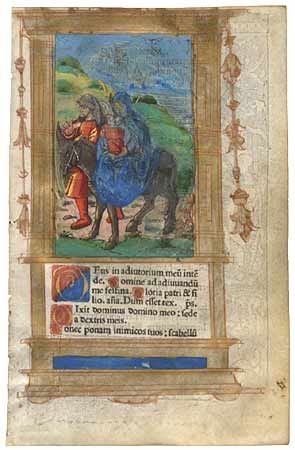 Eus in adiutorium meũ intẽ
de. Domine ad adiuvandũ
me festina. Gloria patri & fi
lio. aña. Dum esset rex. ps.
Ixit dominus domino meo: sede
a dextris meis.
onec ponam inimicos tuos: scabellũ